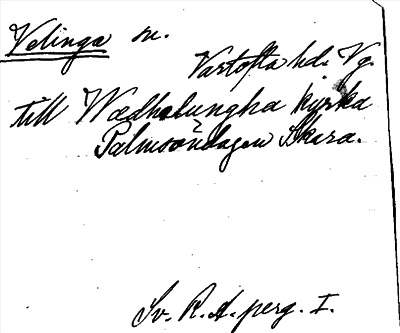 Velinga sn.
Vartofta hd. Vg.
till Wædhelungha kirka
Palmsöndagen Skara.
Sv. R. A. perg. I.